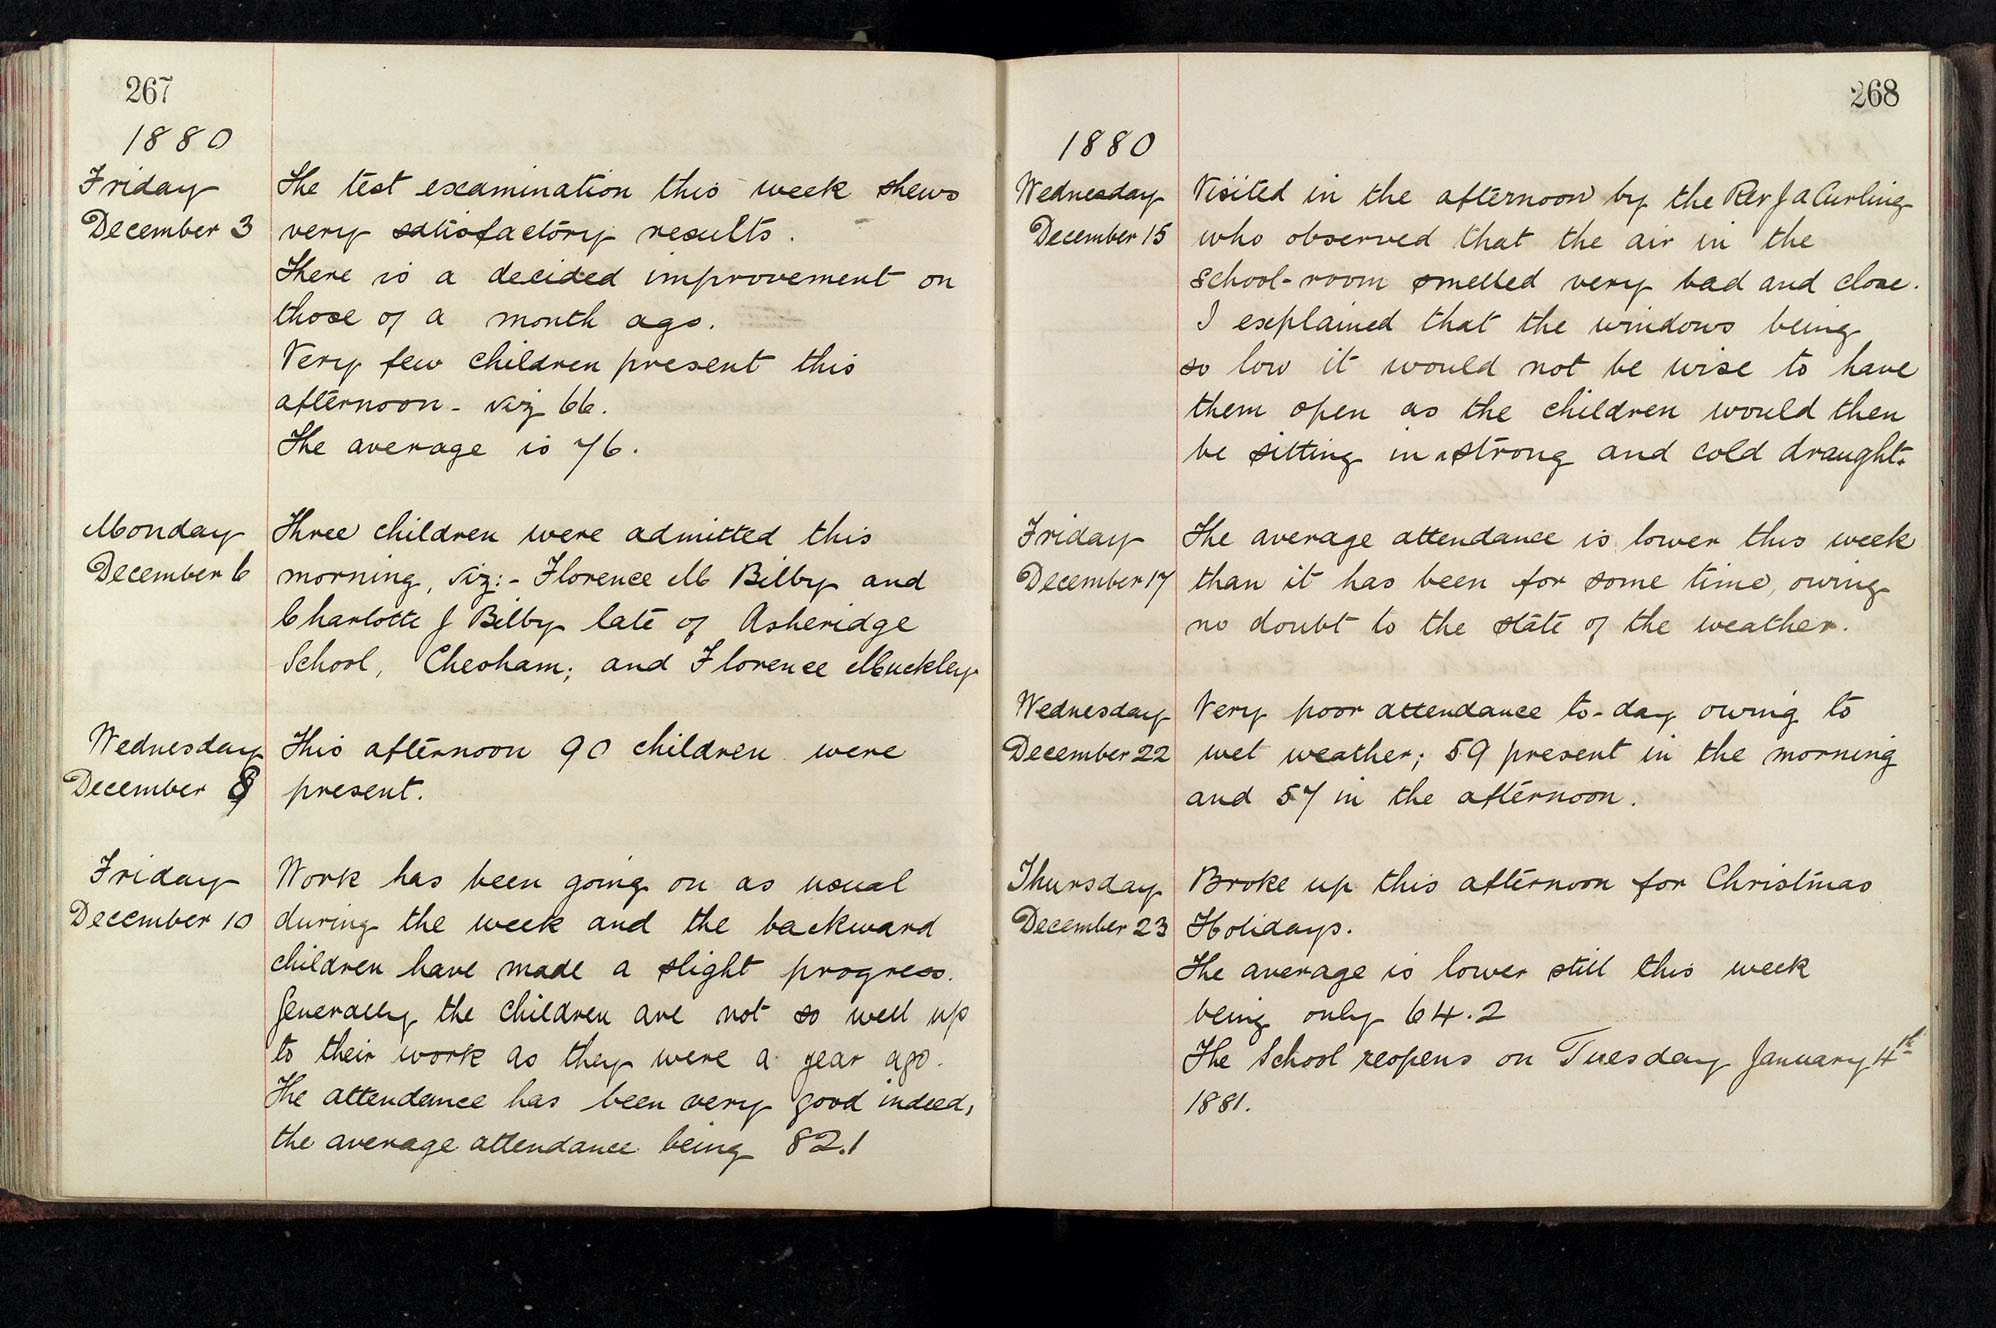 267
1880
Friday
December 3
The test examination this week shews
very satisfactory results.
There is a decided improvement on
those of a month ago.
Very few children present this
afternoon - viz 66.
The average is 76.
Monday
December 6
Three children were admitted this
morning, viz:- Florence M Bilby and
Charlotte J Bilby late of Asheridge
School, Chesham; and Florence Muckley
Wednesday
December 8
This afternoon 90 children were
present.
Friday
December 10
Work has been going on as usual
during the week and the backward
children have made a slight progress.
Generally the children are not so well up
to their work as they were a year ago.
The attendance has been very good indeed,
the average attendance being 82.1
268
1880
Wednesday
December 15
Visited in the afternoon by the Rev J A Curling
who observed that the air in the
school-room smelled very bad and close.
I explained that the windows being
so low it would not be wise to have
them open as the children would then
be sitting in a strong and cold draught.
Friday
December 17
The average attendance is lower this week
than it has been for some time, owing
no doubt to the state of the weather.
Wednesday
December 22
Very poor attendance to-day owing to
wet weather; 59 present in the morning
and 57 in the afternoon.
Thursday
December 23
Broke up this afternoon for Christmas
Holidays.
The average is lower still this week
being only 64.2
The School reopens on Tuesday January 4th
1881.